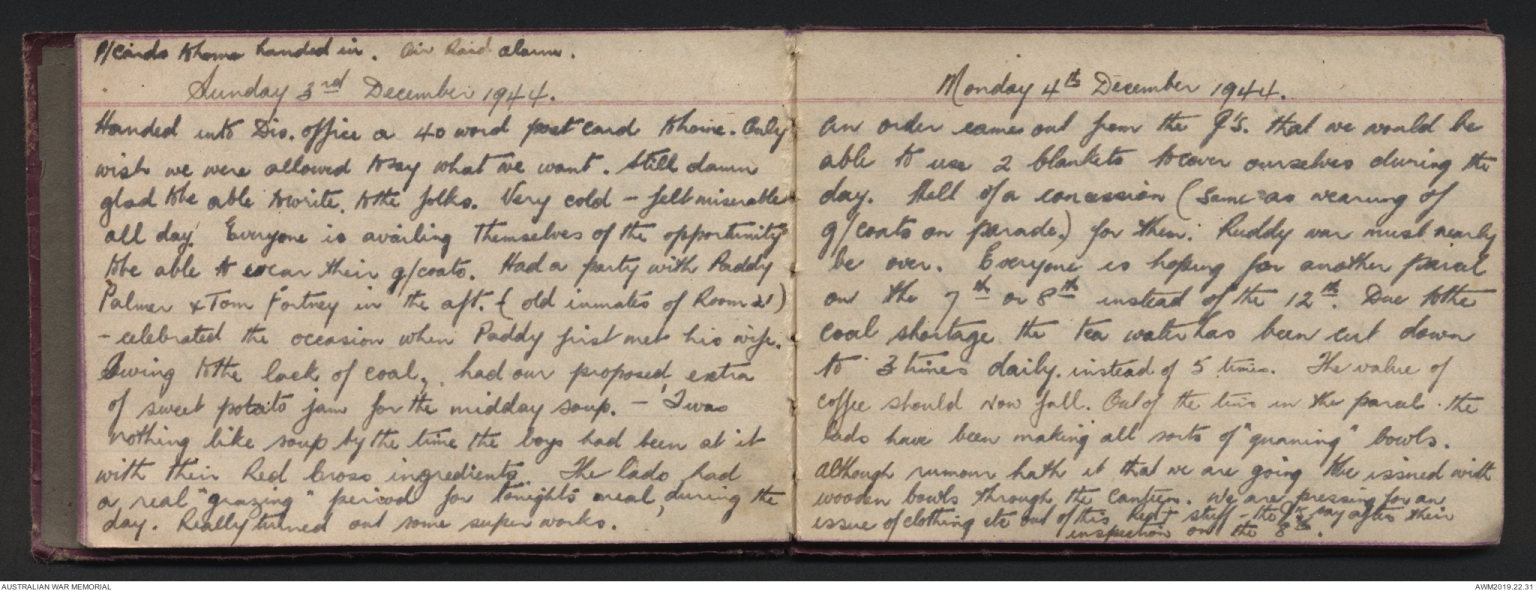 P/Cards to home handed in. Air Raid alarm.
Sunday 3rd December 1944.
Handed into Div. office a 40 word post card to home. Only
wish we were allowed to say what we want. Still damn
glad to be able to write to the folks. Very cold - felt miserable
all day. Everyone is availing themselves of the opportunity
to be able to wear their g/coats. Had a party with Paddy
Palmer & Tom Fortney in the aft. (old inmates of Room 21)
- celebrated the occasion when Paddy first met his wife.
Owing to the lack of coal, had our proposed extra
of sweet potato jam for the midday soup. - Twas
nothing like soup by the time the boys had been at it
with their Red Cross ingredients. The lads had
a real "grazing" period for tonights meal, during the
day. Really turned out some super works.
Monday 4th December 1944.
An order comes out from the J's. that we would be
able to use 2 blankets to cover ourselves during the
day. Hell of a concession (same as wearing of
g/coats on parade,) for them. Ruddy war must nearly
be over. Everyone is hoping for another parcel
on the 7th or 8th instead of the 12th. Due to the
coal shortage the tea water has been cut down
to 3 times daily. instead of 5 times. The value of
coffee should now fall. Out of the tins in the parcel the
lads have been making all sorts of bowls.
Although rumour hath it that we are going to be issued with
wooden bowls through the canteen. We are pressing for an
issue of clothing etc out of this stuff - the J's say after their
inspection on the 8th.
AUSTRALIAN WAR MEMORIAL
AWM2019.22.31